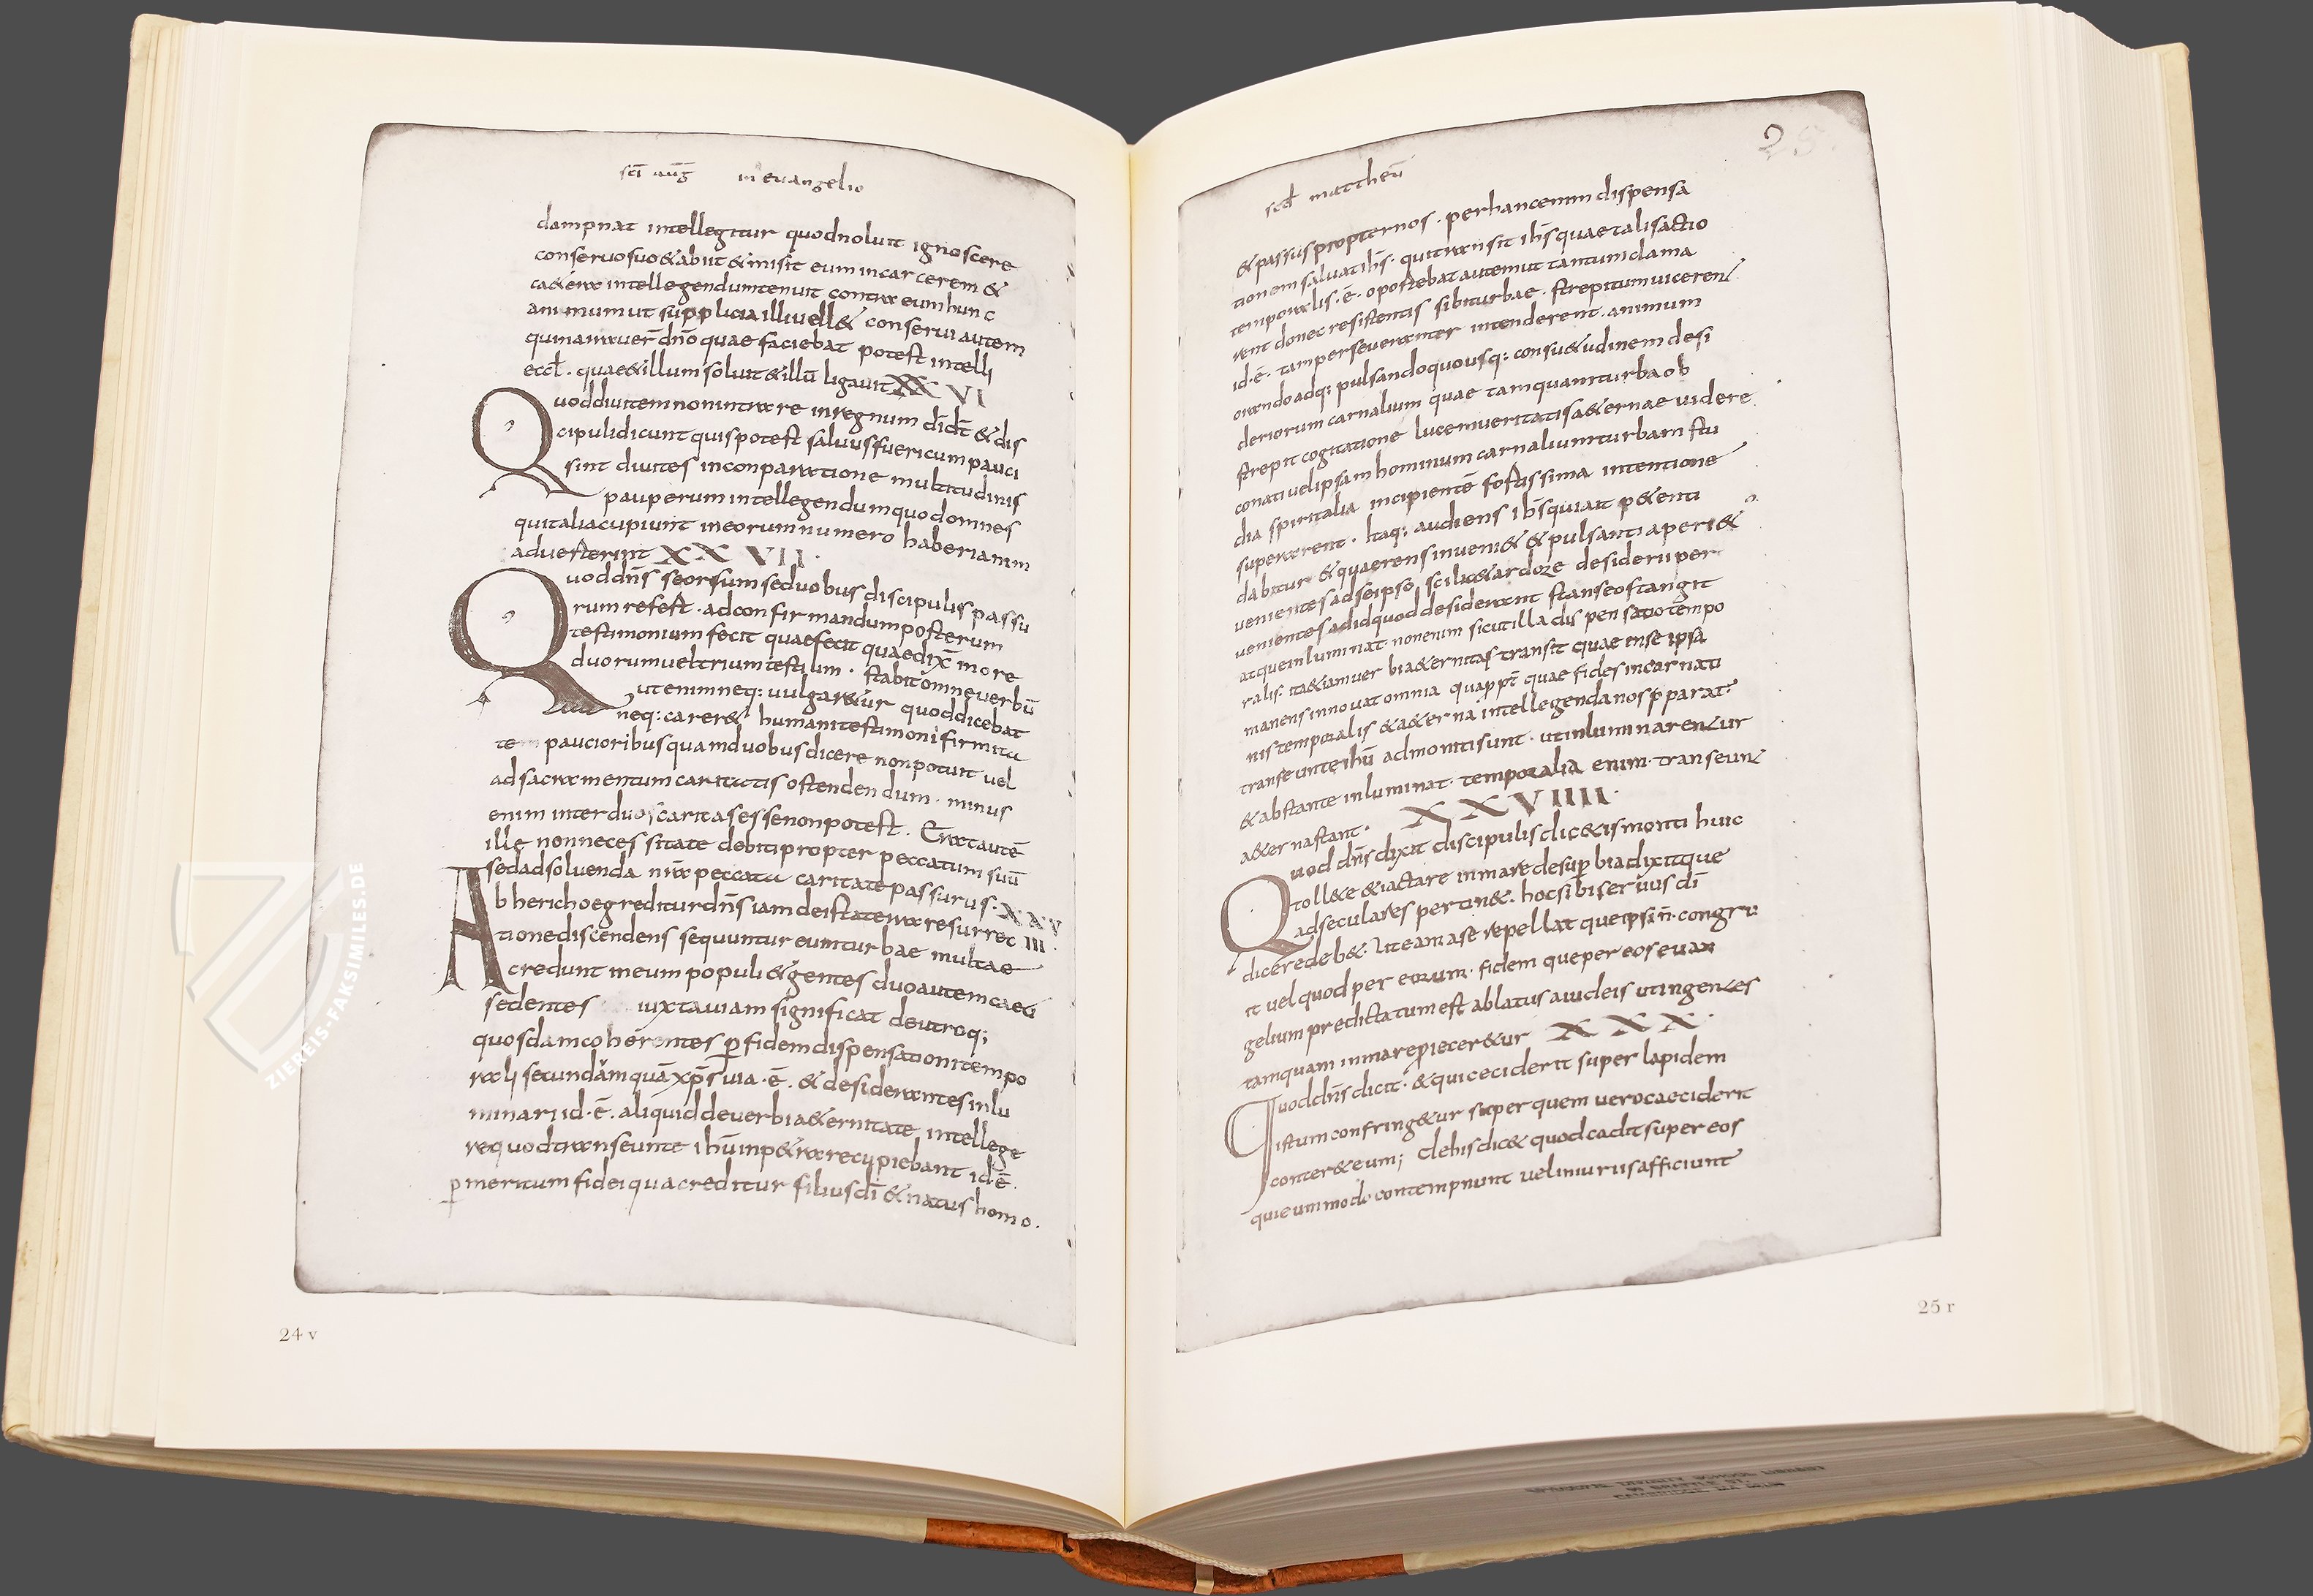 sc̄i aūg in evangelio
dampnat intellegitur quodnoluit ignoscere
conseruosuo&abiit&misit eumincarcerem &
ca&era intellegendumtenuit contra eumhunc
animumut supplicia illiuell& conserui autem
dn̄o quae faciebat potest intelli
quae&illumsoluit&illū ligauit XX VI
Quoddiuitemnonintrare inregnum &dis
cipulidicunt quispotest saluusfuericumpauci
sint diuites inconparatione multitudinis
pauperumintellegendumquodomnes
quitaliacupiunt ineorumnumero haberiam
aduerterint XX VII·
Quoddn̄s seorsumseduobus discipulis passu
rum refert · adconfirmandumposterum
testimonium fecit quaefecit quaedix̄ inore
duorumueltriumtestium · stabitomneuerbū
utenimneq: uulgar&ur quoddicebat
neq:carer& humanitestimonifirmita
te paucioribusquamduobusdicere nonpotuit uel
adsacramentumcaritatis ostendendum · minus
enim interduoscaritasessenonpotest . Erat autē
ille nonnecessitate debitipropter peccatum suū
sedadsoluenda nr̄a peccata caritatepassurus· XXV
Ab herichoegrediturdn̄s iamdeistaterraresurrec III·
tionediscendens sequuntur eumturbae multae
credunt ineumpopuli&gentes duoautemcaeci
sedentes iuxtauiam significat deutroq;
quosdamcoherentes p̱fidemdispensationitempo
rali secundāmquāxp̄s uia ·ē· &desiderantesinlu
minari id·ē· aliquiddeuerbia&ernitate intellege
requodtranseunte ihūinp&rarecupiebant id·ē·
p̱meritumfideiquacreditur filiusdī&natus homo·
24 v
scd̄ mattheū
25
&passus propternos · perhancenimdispensa
tionemsaluatih̄s· quitransit ih̄squaetalisactio
temporalis·ē· oportebatautemut tantumclama
rent donecresistentis sibiturbae · strepitumuicerent
id·ē· tamperseueranter intenderent· animum
orandoadq; pulsandoquousq; consu&udinemdesi
deriorum carnalium quae tamquamturbaob
strepit cogitatione lucemueritatisa&ernae uidere
conatiuelipsamhominum carnaliumturbam stu
dia spiritalia incipientē fortissima intentione
superarent · Itaq; audiens ih̄squiait p&enti
dabitur &quaerensinueni& &pulsanti aperi&
uenientesadseipso scilic&ardore desideriiper
uenientesadidquoddesiderant stanseostangit
atqueinluminat nonenim sicutilla dispensatiotempo
ralis· ita&iamuerbia&ernitas transit quae inse ipsa
manensinnouatomnia quapp̄t quae fidesincarnati
nistemporalis &a&erna intellegendanosp̱parat·
transeunteihū admonitisunt · utinluminarentur
&abstante inluminat· temporalia enim·transeunt
a&ernastant· XXVIIII·
Quod dn̄sdixit discipulisdic&ismonti huic
toll&e&iactare inmare desup̱biadixitque
adseculares pertin&· hocsibiseruusdī
diceredeb&· Uteamase repellat congru
it uel quodper eorum· fidem queper eoseuan
geliumpredictatumest ablatus aiudeis utingentes
tamquam inmarep̱iecer&ur XXX·
Quoddn̄sdicit· &quiceciderit super lapidem
istumconfring&ur super quem uerocaeciderit
conter&eum; dehisdic& quodcaditsupereos
quieummodocontempnunt ueliniuriisafficiunt
25 r
ZIEREIS-FAKSIMILES.DE
EPISCOPAL DIVINITY SCHOOL LIBRARY
99 BRATTLE ST.
CAMBRIDGE, MA 02138